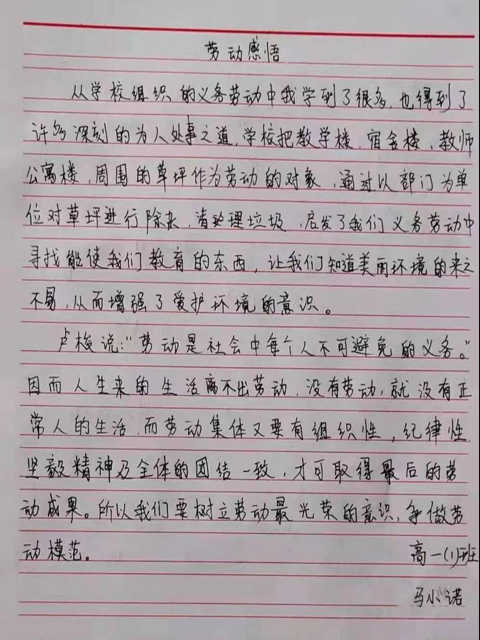 劳动感悟
从学校组织的义务劳动中我学到了很多,也得到了
许多深刻的为人处事之道,学校把教学楼,宿舍楼,教师
公寓楼,周围的草坪作为劳动的对象,通过以部门为单
位对草坪进行除杂,清理垃圾,启发了我们义务劳动中
寻找能使我们教育的东西,让我们知道美丽环境的来之
不易,从而增强了爱护环境的意识。
卢梭说:“劳动是社会中每个人不可避免的义务。”
因而人生来的生活离不出劳动,没有劳动,就没有正
常人的生活,而劳动集体又要有组织性,纪律性,
坚毅精神及全体的团结一致,才可取得最后的劳
动成果。所以我们要树立劳动最光荣的意识,争做劳
动模范。
高一(1)班
马小诺